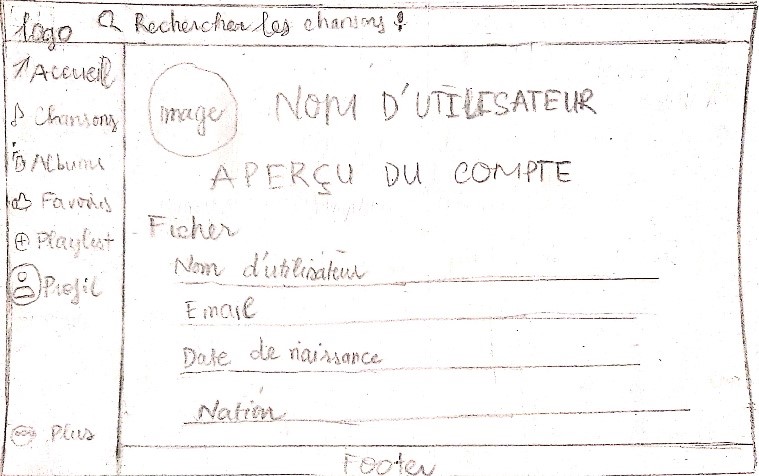 logo Rechercher les chansons
Accueil
Chansons
Albums
Favoris
Playlist
Profil
Plus
image NOM D'UTILISATEUR
APERÇU DU COMPTE
Ficher
Nom d'utilisateur
Email
Date de naissance
Nation
Footer